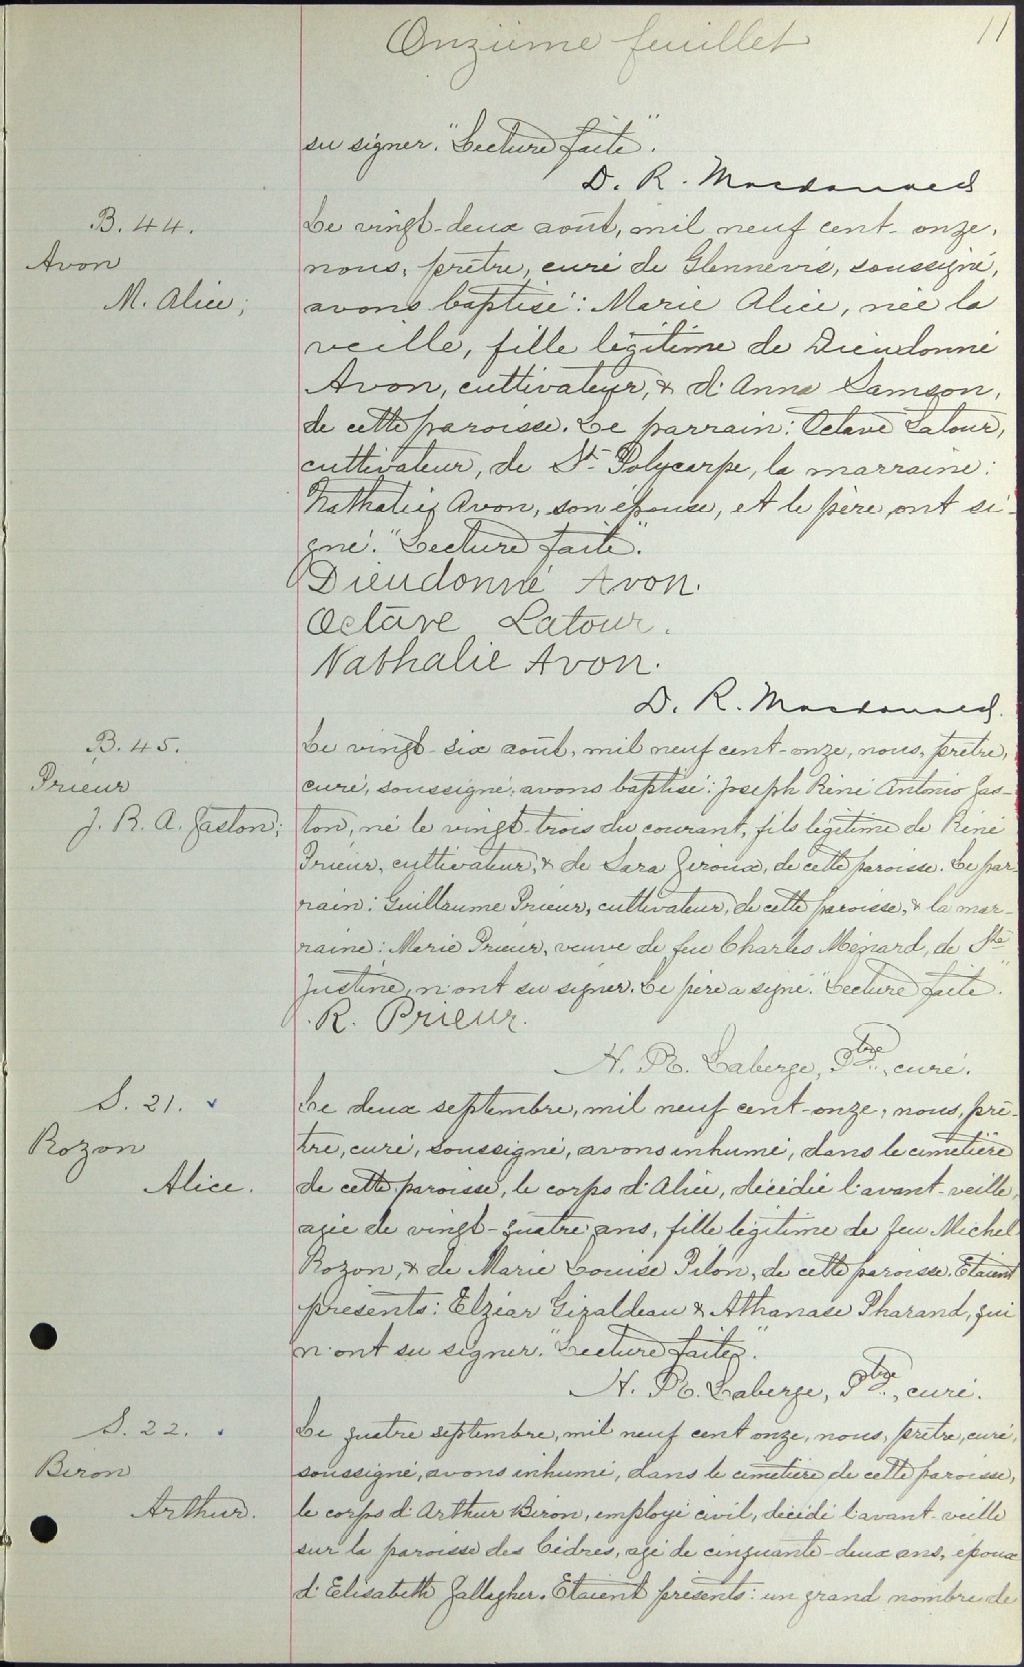 Onzième feuillet
11
su signer. "Lecture faite".
D. R. Macdonald
B. 44.
Avon
M. Alice;
Le vingt-deux août, mil neuf cent-onze,
nous, prêtre, curé de Glennevis, soussigné,
avons baptisé: Marie Alice, née la
veille, fille légitime de Dieudonné
Avon, cultivateur, & d'Anna Samson,
de cette paroisse. Le parrain: Octave Latour,
cultivateur, de St-Polycarpe, la marraine:
Nathalie Avon, son épouse, et le père ont si-
gné. "Lecture faite".
Dieudonné Avon.
Octave Latour.
Nathalie Avon.
D. R. Macdonald.
B. 45.
Prieur
J. R. A. Gaston;
Le vingt-six août, mil neuf cent-onze, nous, prêtre,
curé, soussigné, avons baptisé: Joseph Réné Antonio Gas-
ton, né le vingt-trois du courant, fils légitime de Réné
Prieur, cultivateur, & de Sara Giroux, de cette paroisse. Le par-
rain: Guillaume Prieur, cultivateur, de cette paroisse, & la mar-
raine: Marie Prieur, veuve de feu Charles Ménard, de Ste
Justine, n'ont su signer. Le père a signé. "Lecture faite".
R. Prieur.
Laberge, Ptre, curé.
S. 21.
Rozon
Alice.
Le deux septembre, mil neuf cent-onze, nous, prê-
tre, curé, soussigné, avons inhumé, dans le cimetière
de cette paroisse, le corps d'Alice, décédée l'avant-veille,
agée de vingt-quatre ans, fille légitime de feu Michel
Rozon, & de Marie Louise Pilon, de cette paroisse. Etaient
présents: Elzéar Gizaldeau & Athanase Pharand, qui
n'ont su signer. "Lecture faite".
Laberge, Ptre, curé.
S. 22.
Biron
Arthur.
Le quatre septembre, mil neuf cent onze, nous, prêtre, curé,
soussigné, avons inhumé, dans le cimetière de cette paroisse,
le corps d'Arthur Biron, employé civil, décédé l'avant-veille
sur la paroisse des Cèdres, agé de cinquante-deux ans, époux
d'Elisabeth Gallagher. Etaient présents: un grand nombre de